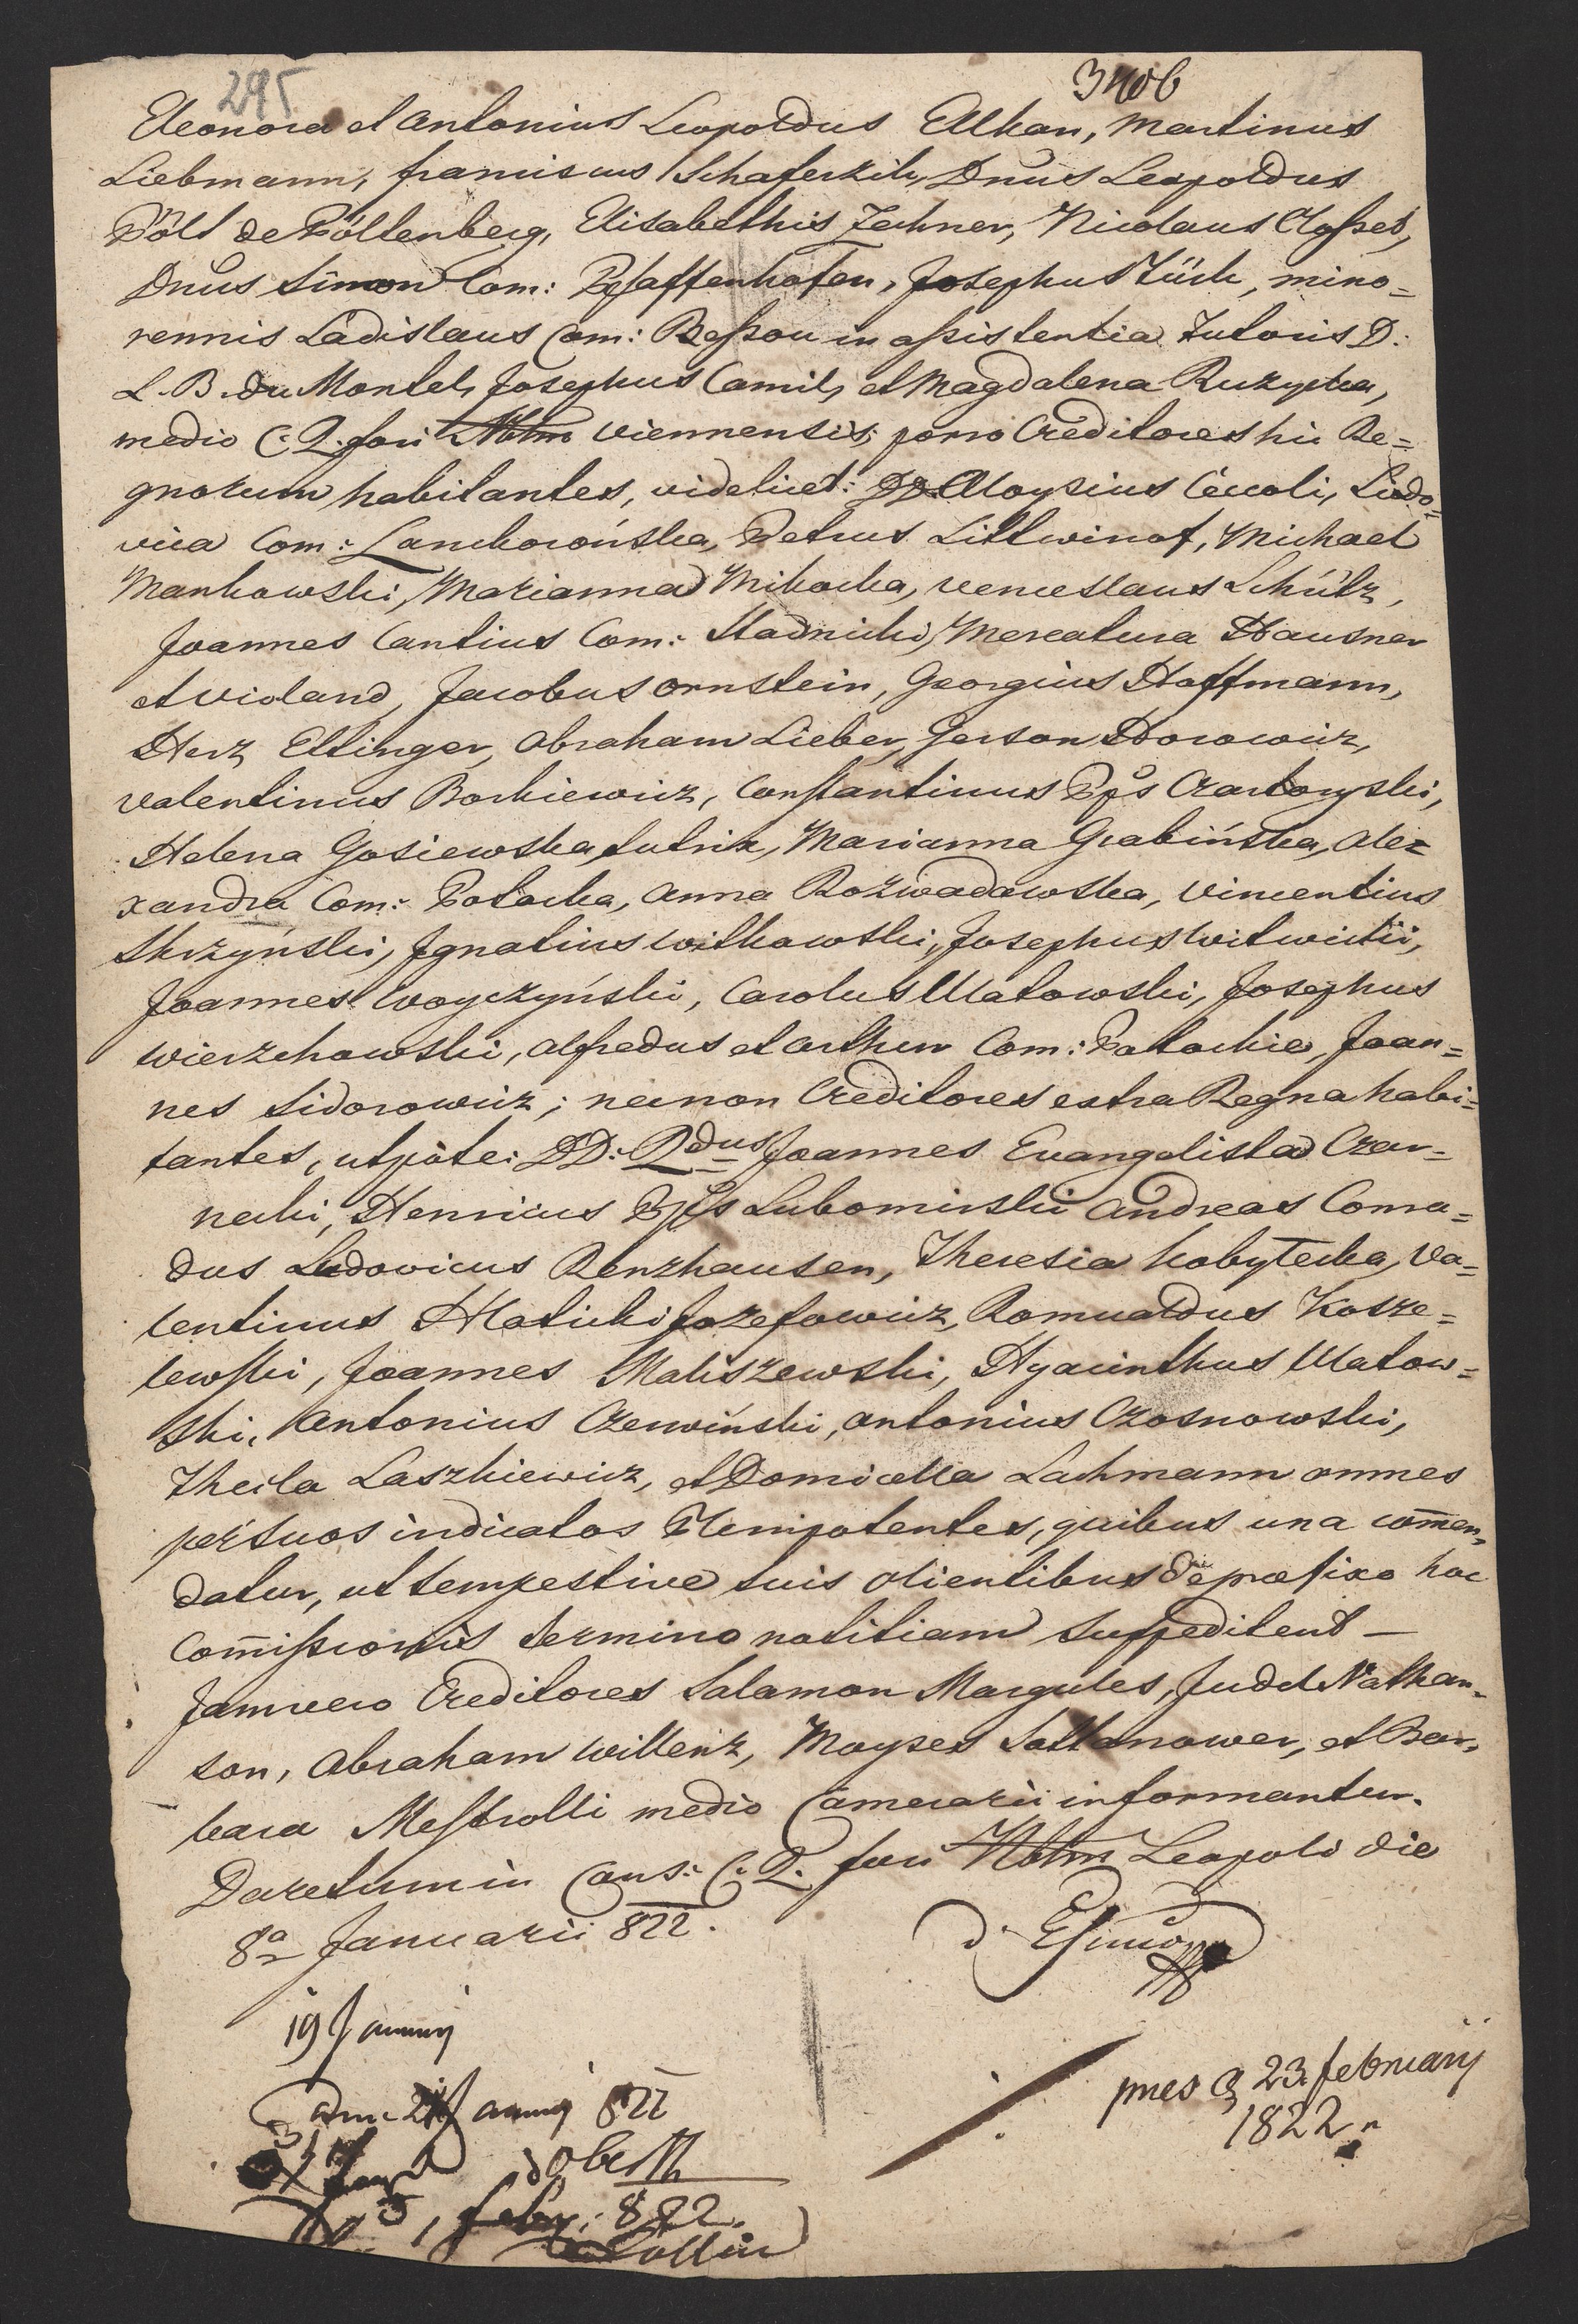 295
3406
Eleonora et Antonius Leopoldus Elkan, Martinus
Liebmann, franciscus Schaferzik, Dnus Leopoldus
Pölt de Pöltenberg, Elisabethis Zechner, Nicolaus
Dnus Simon Com: Pfaffenhofen, Josephus Türk, mino=
rennis Ladislaus Com: in assistentia Tutoris D:
L. B. du Montel, Josephus Camil, et Magdalena Ruzycka,
medio C. R. fori Nblm Viennensis; porro Creditores his Re=
gnorum habitantes, videlicet: DD. Aloysius Ceccoli, Ludo=
vica Com: Lanckorońska, Petrus Littwinof, Michael
Mankowski, Marianna Mikocka, Venceslaus Schütz,
Joannes Cantius Com: Stadnicki, Mercatura Hausner
et Violand, Jacobus Ornstein, Georgius Hoffmann,
Herz Ettinger, Abraham Lieber, Gerson Horowicz,
Valentinus Borkiewicz, Constantinus Pps Czartoryski,
Helena Gosiewska, tutrix, Marianna Grabińska, Ale=
xandra Com: Potocka, Anna Rozwadowska, Vincentius
Skrzyński, Ignatius Witkowski, Josephus Witwicki,
Joannes Woyczyński, Carolus Ulatowski, Josephus
Wierzchowski, Alfredus et Arthur Com: Pottockie, Joan=
nes Sidorowicz; necnon Creditores extra Regna habi=
tantes, utpote: DD: Rdus Joannes Evangelista Czar=
necki, Henricus Pps Lubomirski Andreas Conra=
dus Ludovicus Renzhausen, Theresia Kobytecka, Va=
lentinus Hlaticki Jozefowicz, Romualdus Kosze=
lewski, Joannes Maliszewski, Hyacinthus Ulatow=
ski, Antonius Czerwiński, Antonius Czosnowski,
Thecla Laszkiewicz, et Domicella Lachmann omnes
per suos indicatos Plenipotentes, quibus una com̄en=
datur, ut tempestive suis clientibus de præfixo hoc
Com̄issionis termino notitiam suppeditent —
Jamvero Creditores Salamon Margules, Judel Nathan=
son, Abraham Willenz, Moyses Sattanower, et Bar=
bara Mestrolli medio Camerarii informantur.
Decretum in Cons: C. R. fori Nblm Leopoli die
8a Januarii 822.
19 January
822
feby: 822.
pres d 23 february
1822